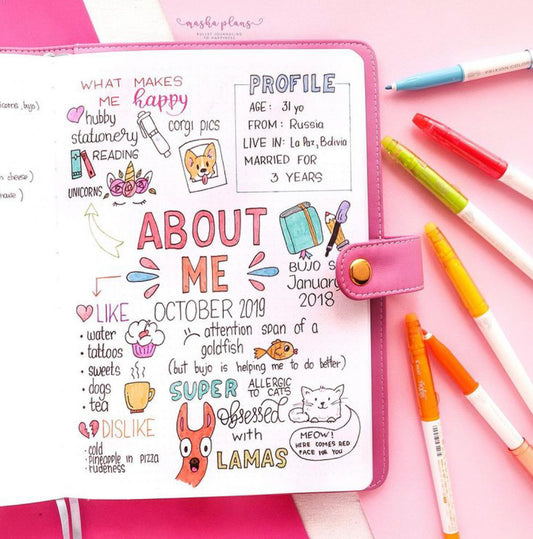 masha plans
BULLET JOURNALING
TO HAPPINESS
WHAT MAKES
ME happy
hubby
stationery
corgi pics
READING
UNICORNS
PROFILE
AGE: 31 yo
FROM: Russia
LIVE IN: La Paz, Bolivia
MARRIED FOR
3 YEARS
ABOUT
ME
BUJO S
January
2018
OCTOBER 2019
LIKE
• water
• tattoos
• sweets
• dogs
• tea
DISLIKE
• cold
• pineapple in pizza
• rudeness
attention span of a
goldfish
(but bujo is helping me to do better)
SUPER ALLERGIC
TO CATS
Obsessed
with
LAMAS
MEOW!
HERE COMES RED
FACE FOR YOU